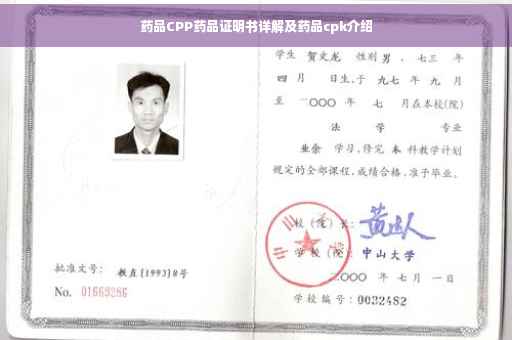 药品CPP药品证明书详解及药品cpk介绍
学生 贺文龙 性别 男 、七三 年
四 月 日生，于 九七 年 九 月
至 二〇〇〇 年 七 月在本校(院)
法 学 专业
业余 学习，修完 本 科教学计划
规定的全部课程，成绩合格，准予毕业。
校（院）长：
学校（院）：中山大学
二〇〇〇 年 七 月 一 日
学校编号：0032482
批准文号： 教直[1993]8号
No. 01663286